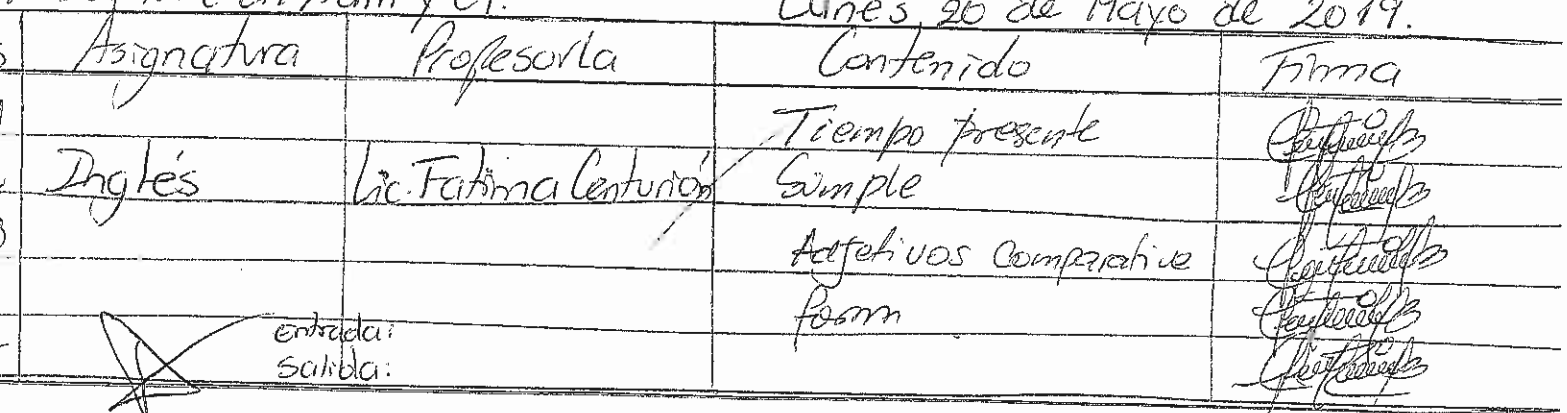 Lunes, 20 de Mayo de 2019.
Asignatura Profesor/a Contenido Firma
Tiempo presente
Inglés Lic. Fatima Centurión Simple
Adjetivos Comparative
form
entrada:
Salida: